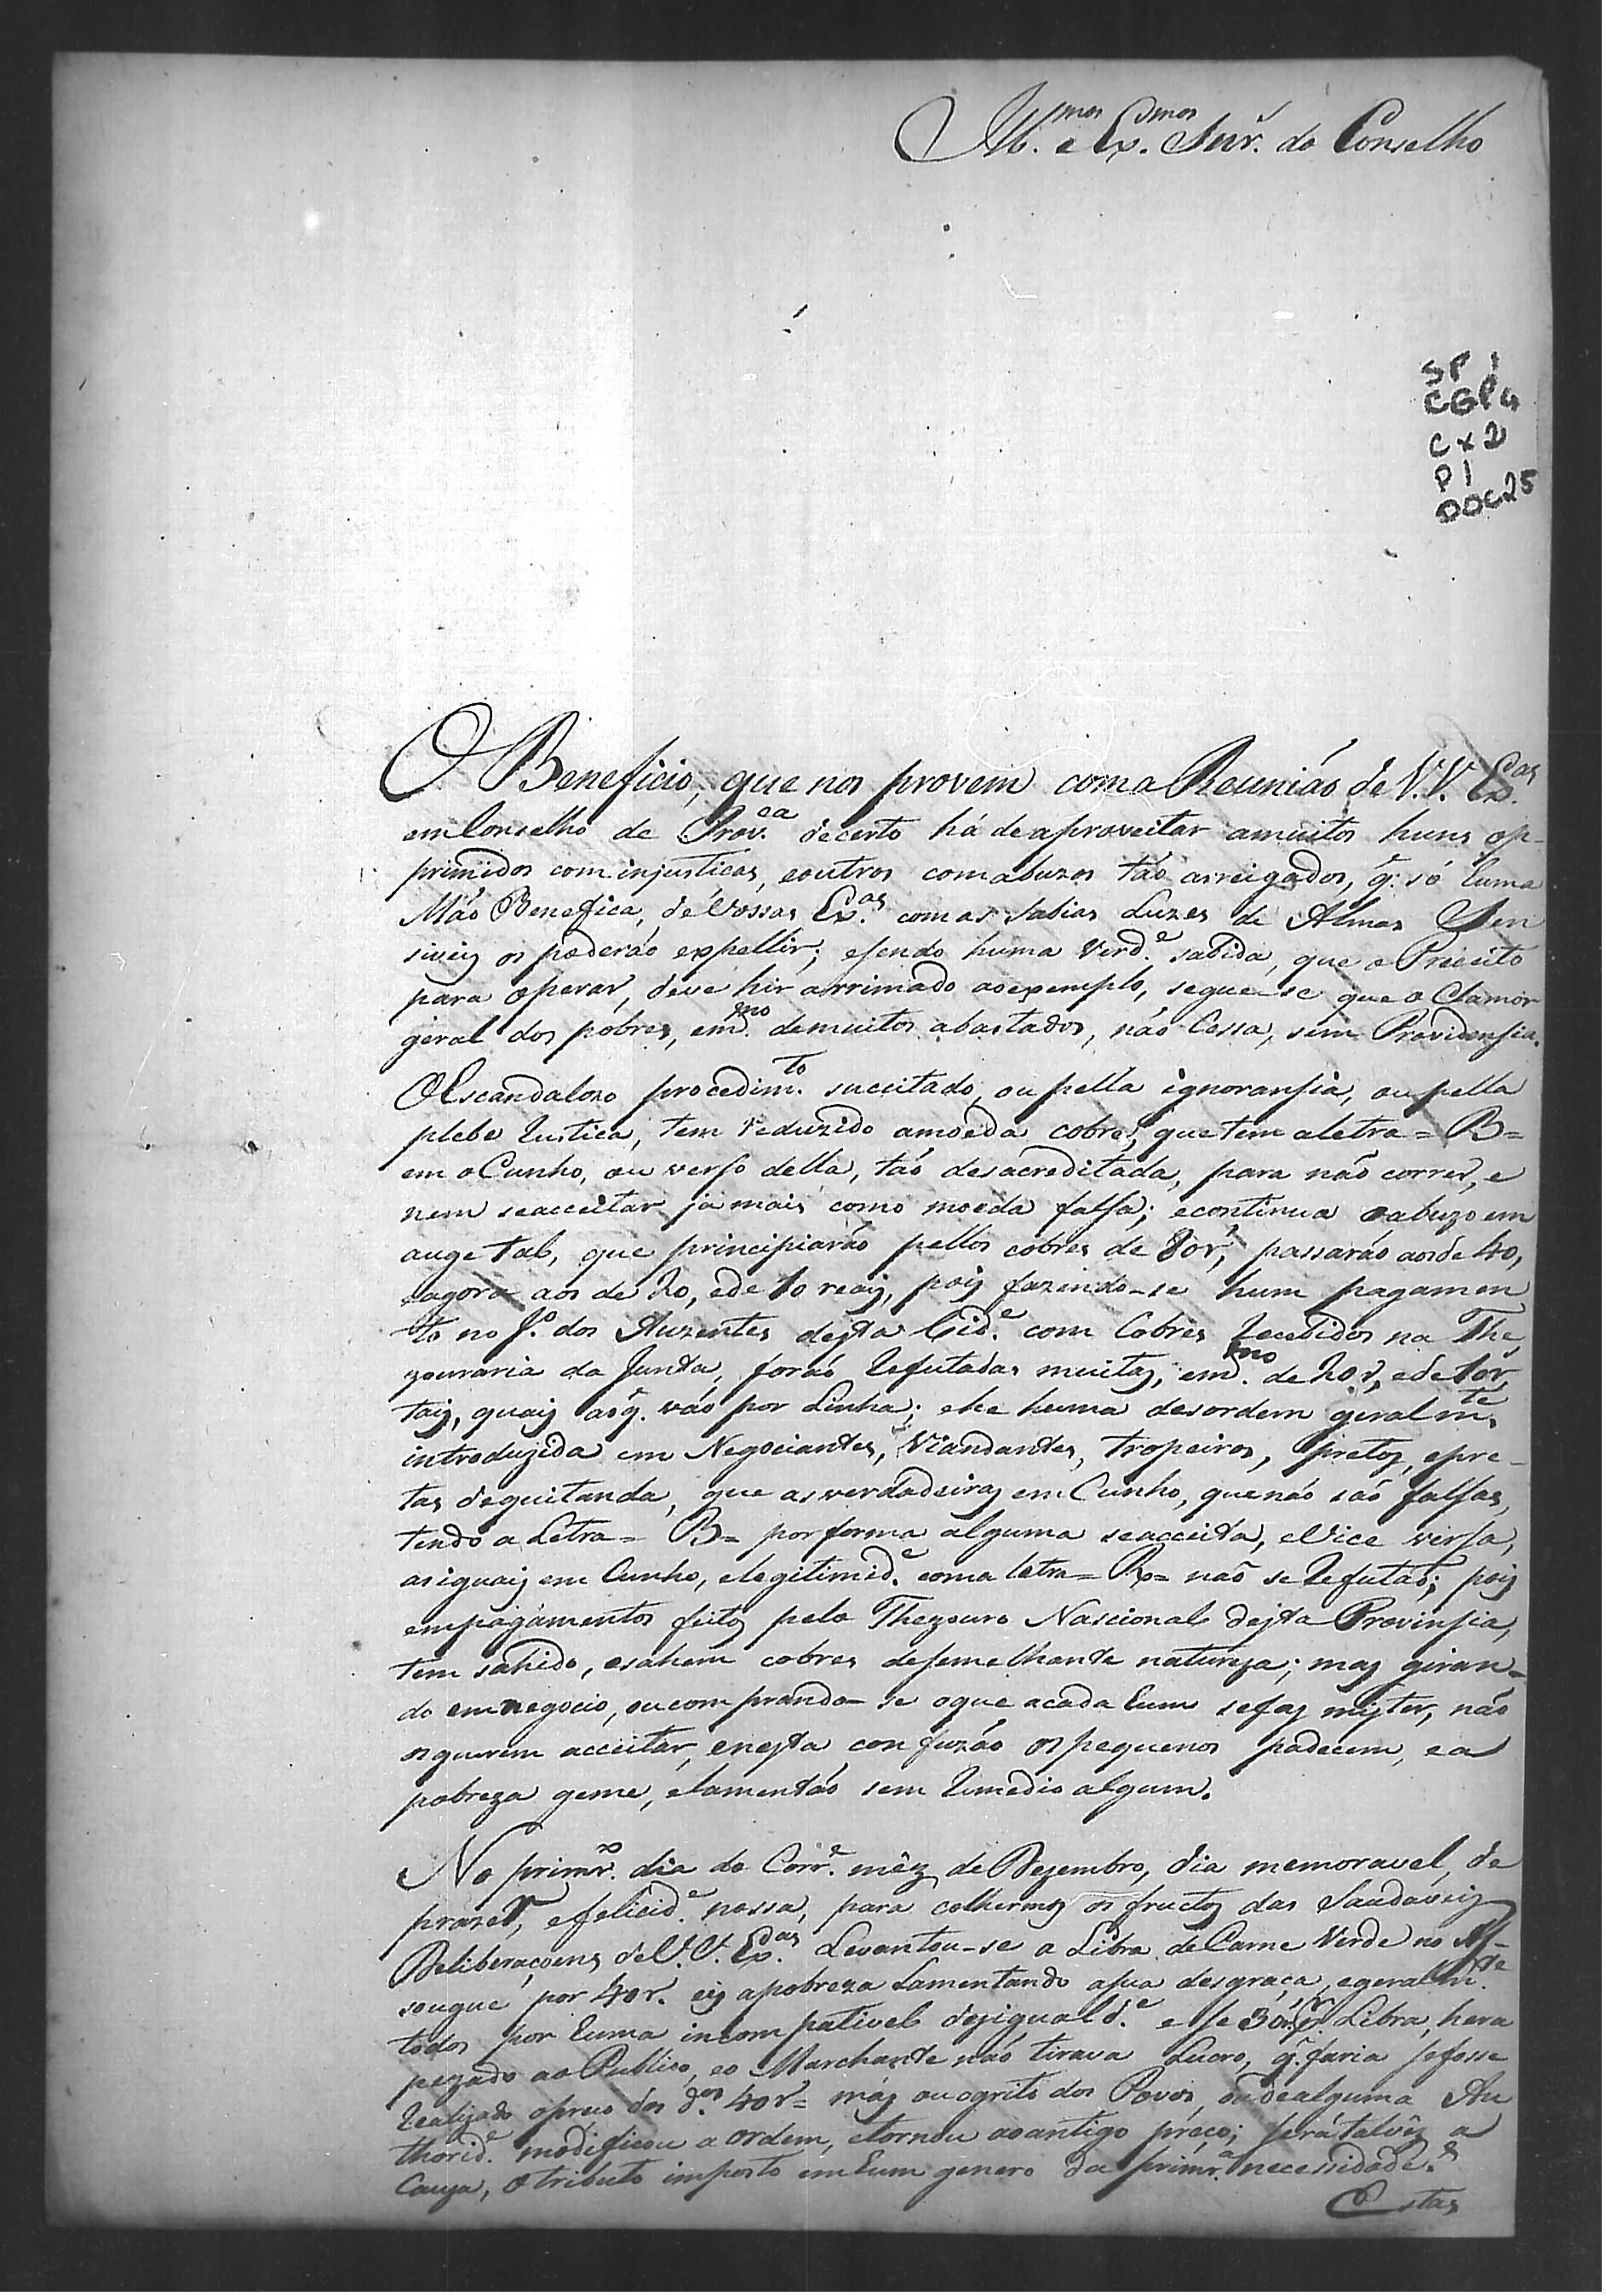 Ill.mos e Ex.mos Snr.s do Conselho
SP 1
CGP4
Cx2
P1
DOC25
O Beneficio, que nos provem com a Reunião de V.V. Ex.as
em Conselho de Prov.ca decerto há de aproveitar amuitos huns op-
primidos com injustiças, eoutros comabuzos tão arreigados, q. só huma
Mão Benefica, de Vossas Ex.as com as Sabias Luzes de Almas Sen
siveis os poderáo expellir; esendo huma Verd.e sabida, que o Preceito
para operar, deve hir arrimado aoexemplo, segue-se que o Clamor
geral dos pobres, em.mo demuitos abastados, não Cessa, sem Providensia.
O Escandalozo procedim.to sucitado, ou pella ignoransia, ou pella
plebe rustica, tem reduzido amoeda cobre, que tem aletra = B =
em o Cunho, ou verso della, táo desacreditada, para não correr, e
nem seacceitar jamais como moeda falsa; econtinua oabuzo em
auge tal, que principiaráo pellos cobres de 80r.s, passaráo aosde 40,
eagora aos de 20, ede 10 reais, pois fazendo-se hum pagamen
to no J.o dos Auzentes desta Cid.e com Cobres recebidos na The
zouraria da Junta, foráo refutadas muitas, em.mo de 20r.s, ede 10r.s
tais, quais as q. váo por Linha; ehe huma desordem geralm.te
introduzida em Negociantes, Viandantes, tropeiros, pretos, epre-
tas dequitanda, que as verdadeiras em Cunho, quenáo sáo falsas,
tendo a Letra = B = por forma alguma seacceita, eVice versa,
asiguais em Cunho, elegitimid.e coma letra = R = naõ se refutaõ; pois
empagamentos feitos pelo Thezouro Nascional desta Provinsia,
tem sahido, esahem cobres desemelhante natureza; mas giran-
do em negocio, oucomprando-se oque acada hum sefas mister, náo
osquerem acceitar, enesta confuzáo ospequenos padecem, ea
pobreza geme, elamentáo sem remedio algum.
No primr.o dia do Corr.e mêz de Dezembro, dia memoravel, de
prazer, efelicid.e nossa, para colhermos os fructos das Saudaveis
Deliberaçoens deV.V. Ex.as Levantou-se a Libra de Carne Verde no A-
sougue por 40r. eis apobreza Lamentando asua desgraça, egeralm.te
todos por huma incompativel desiguald.e e se 30r.s p.r Libra, hera
pezado ao Publico, eo Marchante náo tirava Lucro, q. faria sefosse
realizado opreco dos d.os 40r.= más ouogrito dos Povos, oudealguma Au
thorid.e modificou a ordem, etornou aoantigo préço; serátalvêz a
Cauza, o tributo imposto emhum genero da primr.a necessidade.
Estas